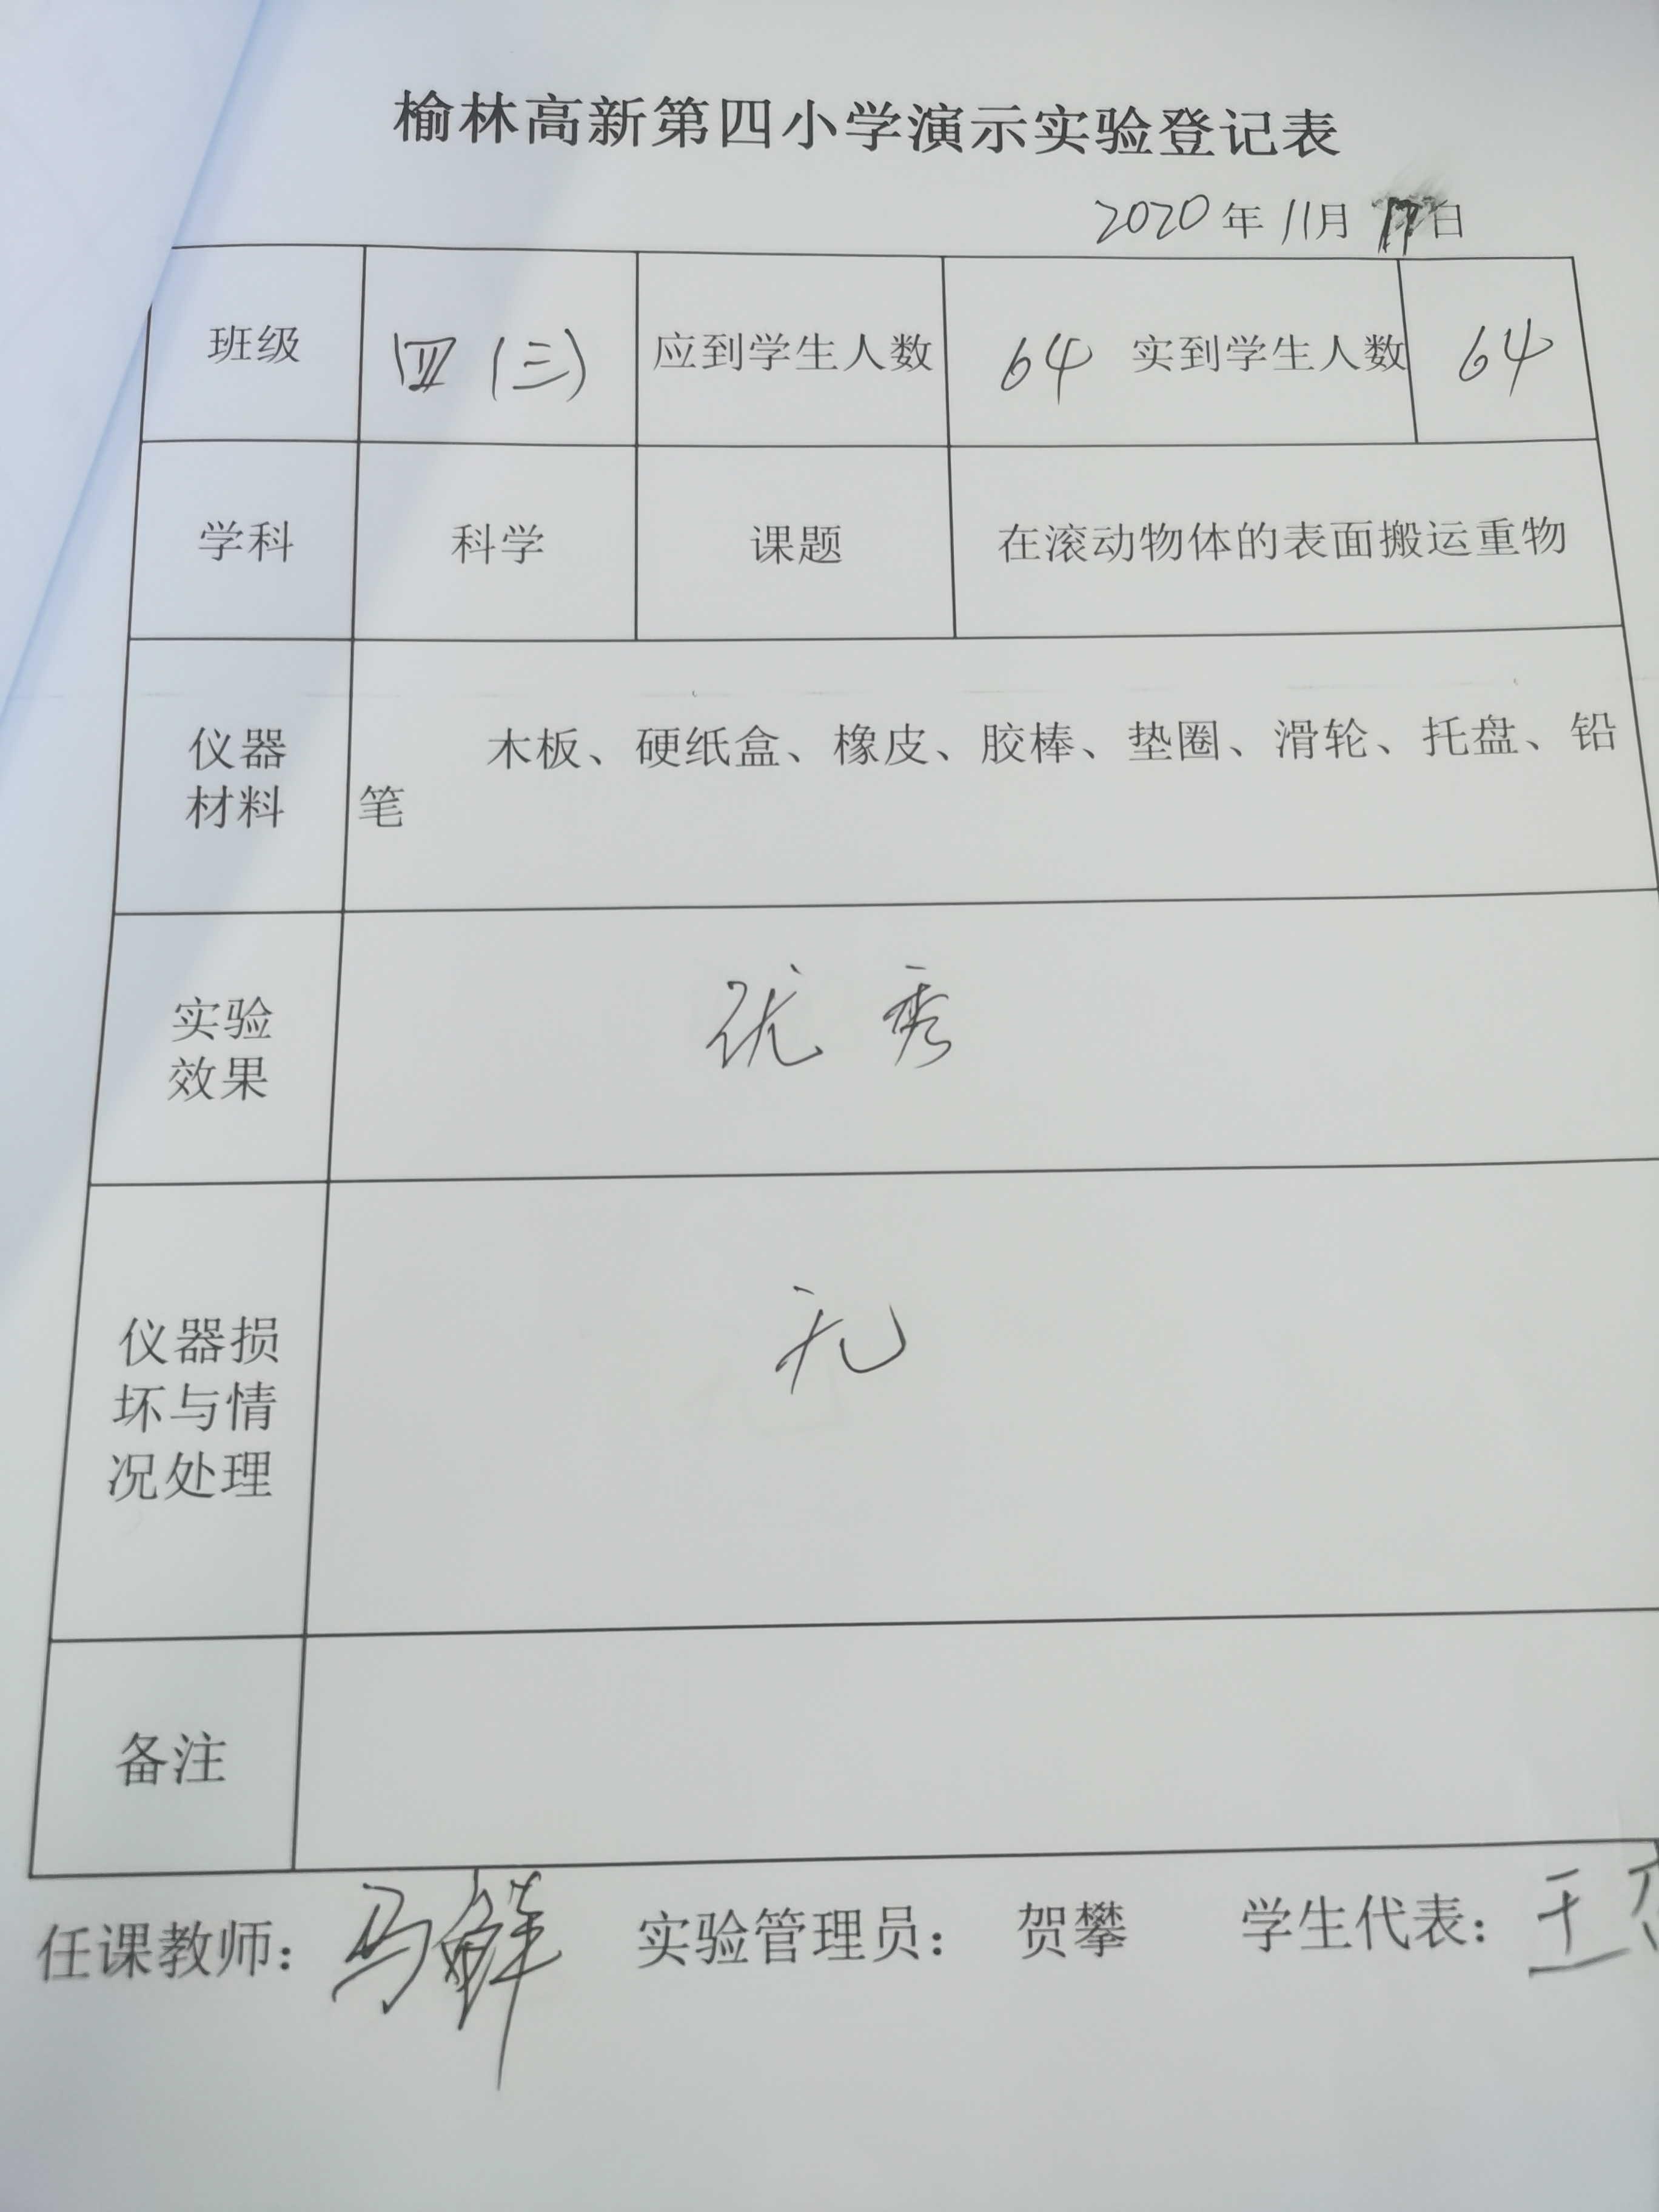 榆林高新第四小学演示实验登记表
2020年11月17日
班级 四(三) 应到学生人数 64 实到学生人数 64
学科 科学 课题 在滚动物体的表面搬运重物
仪器
材料
木板、硬纸盒、橡皮、胶棒、垫圈、滑轮、托盘、铅
笔
实验
效果
优秀
仪器损
坏与情
况处理
无
备注
任课教师: 马鲜 实验管理员: 贺攀 学生代表: 王